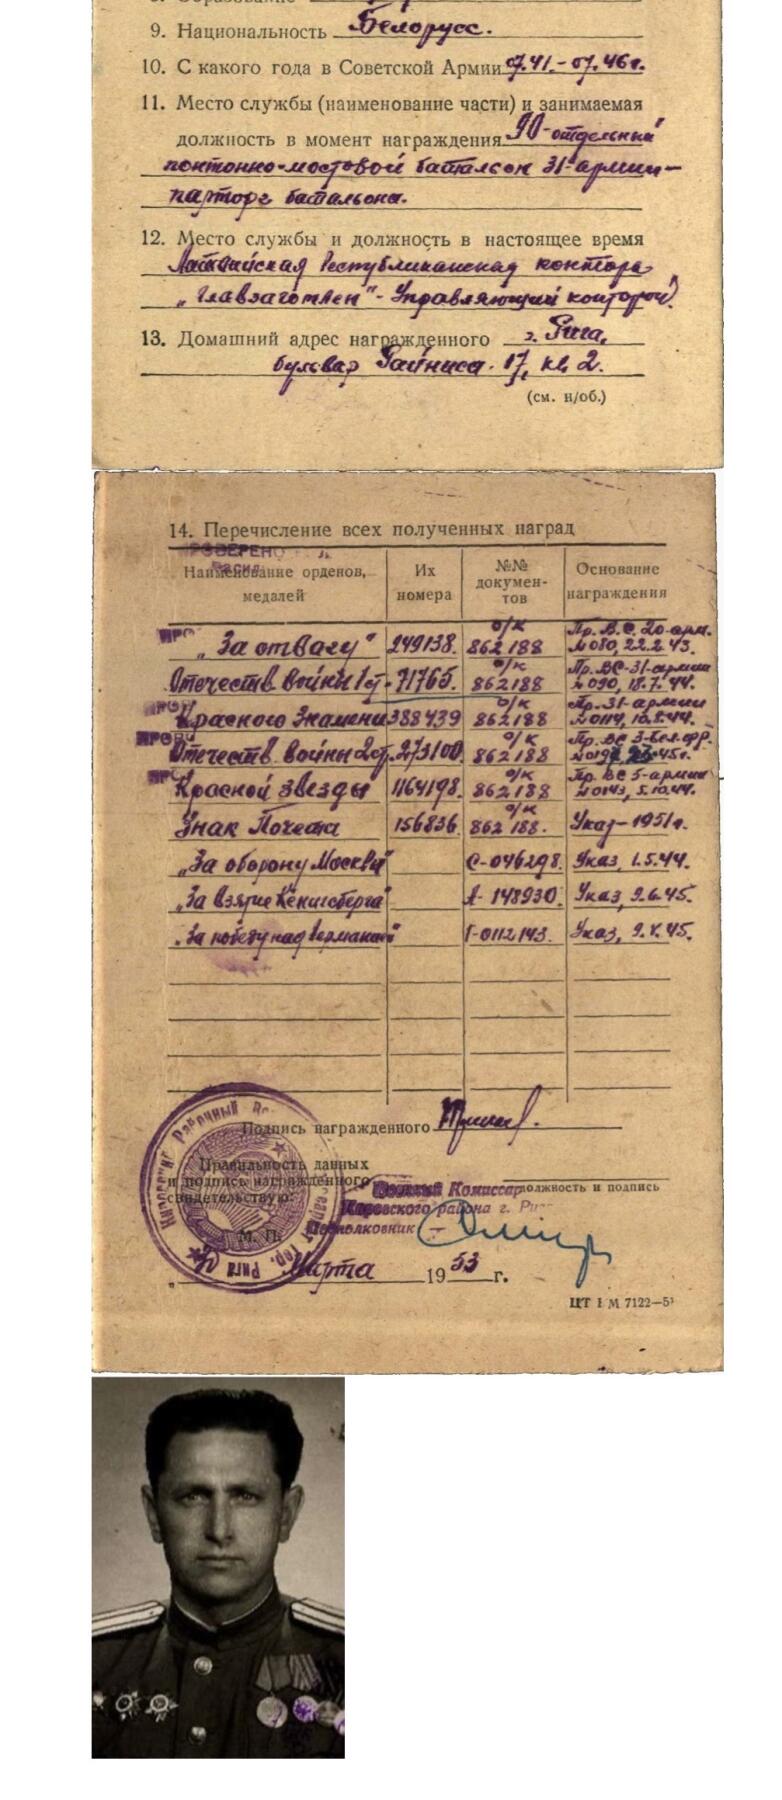 9. Национальность Белорусс.
10. С какого года в Советской Армии 07.41.-07.46г.
11. Место службы (наименование части) и занимаемая
должность в момент награждения 90-отдельный
понтонно-мостовой батальон 31-армии-
парторг батальона.
12. Место службы и должность в настоящее время
Латвийская Республиканская контора
"Главзаготлен"- Управляющий конторой.
13. Домашний адрес награжденного г. Рига,
бульвар Райниса. 17, кв. 2.
(см. н/об.)
14. Перечисление всех полученных наград
Наименование орденов, медалей Их номера №№ документов Основание награждения
"За отвагу" 249138. о/к 862188 Пр. В.С. 20-арм. №080, 22.2.43.
Отечеств. войны 1ст. 71765. о/к 862188 Пр. ВС-31-армии №090, 18.7.44.
Красного Знамени 388439 о/к 862188 Пр. 31-армии №0114, 10.8.44.
Отечеств. войны 2ст. 273100. о/к 862188 Пр. ВС 3-Бел.фр.
Красной звезды 1164198. о/к 862188 Пр. ВС 5-армии №0143, 5.10.44.
Знак Почета 156836. о/к 862188. Указ-1951г.
"За оборону Москвы" С-046298. Указ, 1.5.44.
"За взятие Кенигсберга" А-148930. Указ, 9.6.45.
"За победу над Германией" Г-0112143. Указ, 9.5.45.
Подпись награжденного
Правильность данных
и подпись награжденного
свидетельствую:
Военный Комиссар должность и подпись
Кировского района г. Ри
Подполковник
М. П.
Марта 1953 г.
ЦТ 1 М 7122—5